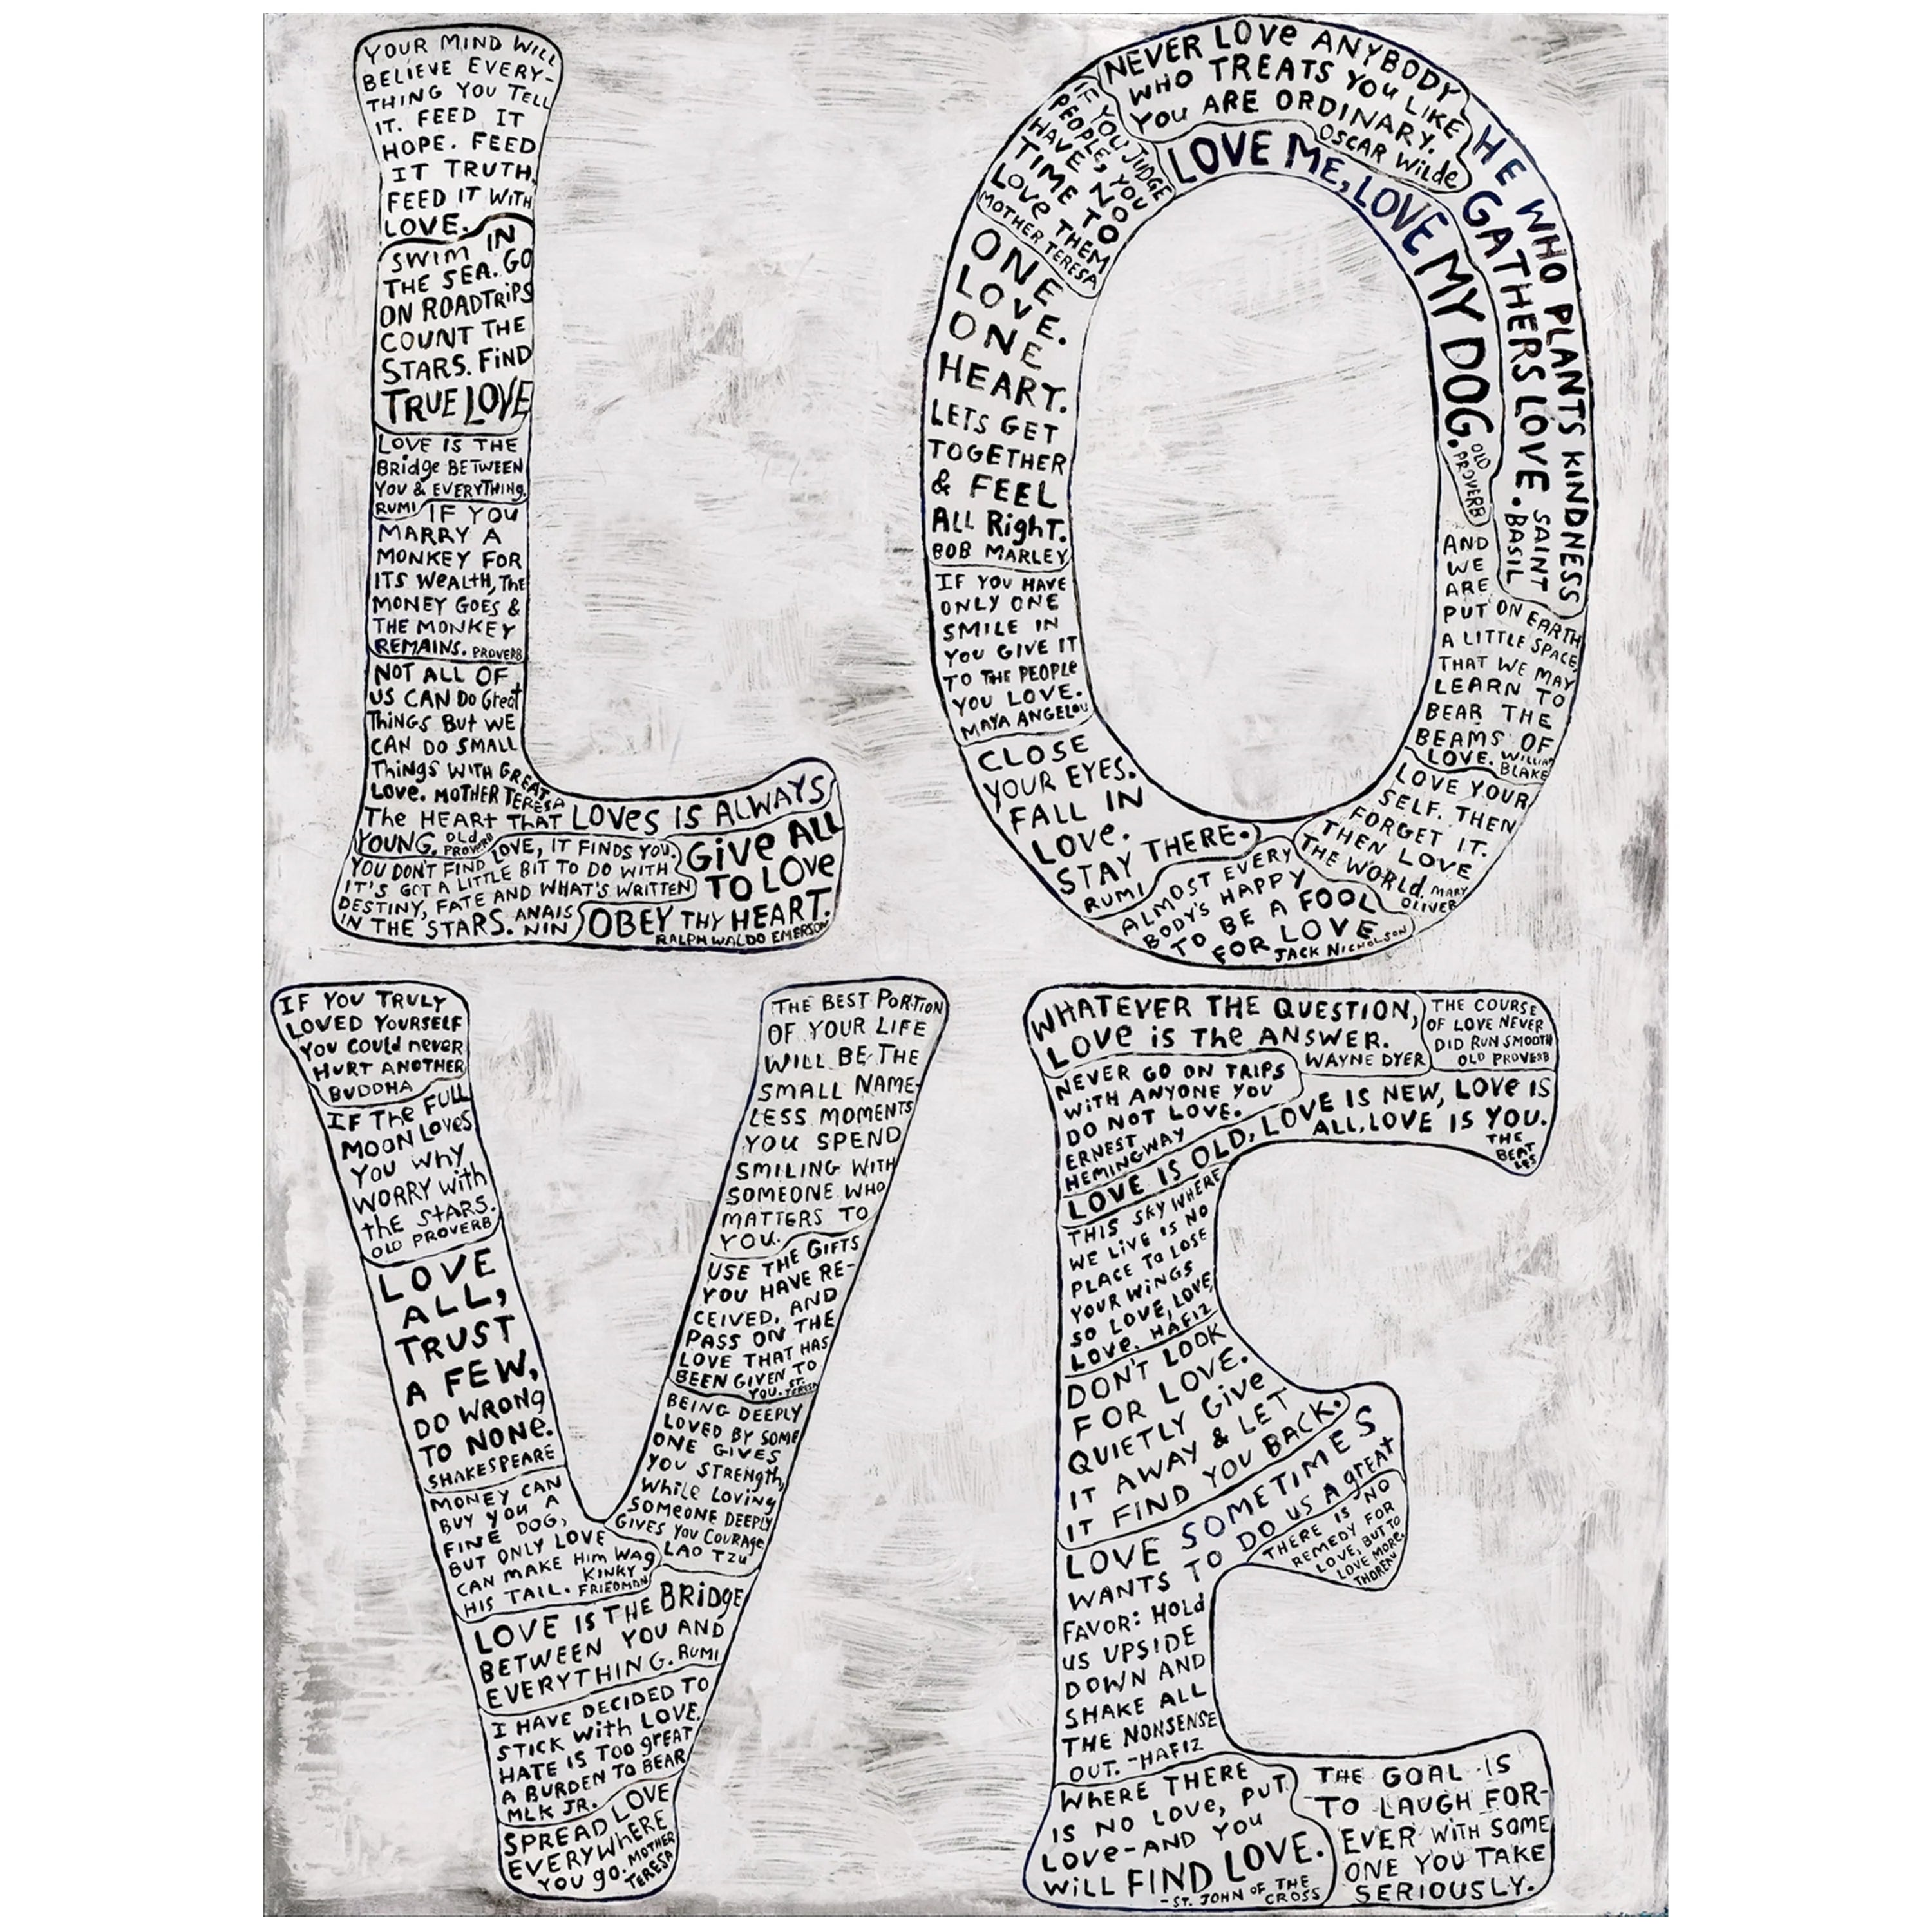 YOUR MIND WILL
BELIEVE EVERY-
THING YOU TELL
IT. FEED IT
HOPE. FEED
IT TRUTH.
FEED IT WITH
LOVE.
SWIM IN
THE SEA. GO
ON ROADTRIPS
COUNT THE
STARS. FIND
TRUE LOVE
LOVE IS THE
BRIDGE BETWEEN
YOU & EVERYTHING.
RUMI
IF YOU
MARRY A
MONKEY FOR
ITS WEALTH, THE
MONEY GOES &
THE MONKEY
REMAINS. PROVERB
NOT ALL OF
US CAN DO Great
THINGS BUT WE
CAN DO SMALL
THINGS WITH GREAT
LOVE. MOTHER TERESA
THE HEART THAT LOVES IS ALWAYS
YOUNG. OLD PROVERB
YOU DON'T FIND LOVE, IT FINDS YOU.
IT'S GOT A LITTLE BIT TO DO WITH
DESTINY, FATE AND WHAT'S WRITTEN
IN THE STARS. ANAIS NIN
GIVE ALL
TO LOVE
OBEY THY HEART.
RALPH WALDO EMERSON
NEVER LOVE ANYBODY
WHO TREATS YOU LIKE
YOU ARE ORDINARY.
OSCAR WILDE
IF YOU JUDGE
PEOPLE, YOU
HAVE NO
TIME TO
LOVE THEM
MOTHER TERESA
LOVE ME, LOVE MY DOG. OLD PROVERB
HE WHO PLANTS KINDNESS
GATHERS LOVE. SAINT BASIL
ONE
LOVE.
ONE
HEART.
LETS GET
TOGETHER
& FEEL
ALL RIGHT.
BOB MARLEY
IF YOU HAVE
ONLY ONE
SMILE IN
YOU GIVE IT
TO THE PEOPLE
YOU LOVE.
MAYA ANGELOU
CLOSE
YOUR EYES.
FALL IN
LOVE.
STAY THERE.
RUMI
AND
WE
ARE
PUT ON EARTH
A LITTLE SPACE,
THAT WE MAY
LEARN TO
BEAR THE
BEAMS OF
LOVE. WILLIAM BLAKE
LOVE YOUR
SELF. THEN
FORGET IT.
THEN LOVE
THE WORLD. MARY OLIVER
ALMOST EVERY
BODY'S HAPPY
TO BE A FOOL
FOR LOVE
JACK NICHOLSON
IF YOU TRULY
LOVED YOURSELF
YOU COULD NEVER
HURT ANOTHER
BUDDHA
IF THE FULL
MOON LOVES
YOU WHY
WORRY WITH
THE STARS.
OLD PROVERB
LOVE
ALL,
TRUST
A FEW,
DO WRONG
TO NONE.
SHAKESPEARE
MONEY CAN
BUY YOU A
FINE DOG,
BUT ONLY LOVE
CAN MAKE HIM WAG
HIS TAIL. KINKY FRIEDMAN
THE BEST PORTION
OF YOUR LIFE
WILL BE THE
SMALL NAME-
LESS MOMENTS
YOU SPEND
SMILING WITH
SOMEONE WHO
MATTERS TO
YOU.
USE THE GIFTS
YOU HAVE RE-
CEIVED, AND
PASS ON THE
LOVE THAT HAS
BEEN GIVEN TO
YOU. ST. TERESA
BEING DEEPLY
LOVED BY SOME
ONE GIVES
YOU STRENGTH,
WHILE LOVING
SOMEONE DEEPLY
GIVES YOU COURAGE.
LAO TZU
LOVE IS THE BRIDGE
BETWEEN YOU AND
EVERYTHING. RUMI
I HAVE DECIDED TO
STICK WITH LOVE.
HATE IS TOO GREAT
A BURDEN TO BEAR
MLK JR.
SPREAD LOVE
EVERYWHERE
YOU GO. MOTHER TERESA
WHATEVER THE QUESTION,
LOVE IS THE ANSWER.
WAYNE DYER
THE COURSE
OF LOVE NEVER
DID RUN SMOOTH
OLD PROVERB
NEVER GO ON TRIPS
WITH ANYONE YOU
DO NOT LOVE.
ERNEST
HEMINGWAY
LOVE IS OLD, LOVE IS NEW, LOVE IS
ALL, LOVE IS YOU.
THE
BEAT
LES
THIS SKY WHERE
WE LIVE IS NO
PLACE TO LOSE
YOUR WINGS
SO LOVE, LOVE,
LOVE. HAFIZ
DON'T LOOK
FOR LOVE.
QUIETLY GIVE
IT AWAY & LET
IT FIND YOU BACK.
LOVE SOMETIMES
WANTS TO DO US A GREAT
FAVOR: HOLD
US UPSIDE
DOWN AND
SHAKE ALL
THE NONSENSE
OUT. -HAFIZ
THERE IS NO
REMEDY FOR
LOVE, BUT TO
LOVE MORE.
THOREAU
WHERE THERE
IS NO LOVE, PUT
LOVE-AND YOU
WILL FIND LOVE.
-ST. JOHN OF THE CROSS
THE GOAL IS
TO LAUGH FOR-
EVER WITH SOME
ONE YOU TAKE
SERIOUSLY.